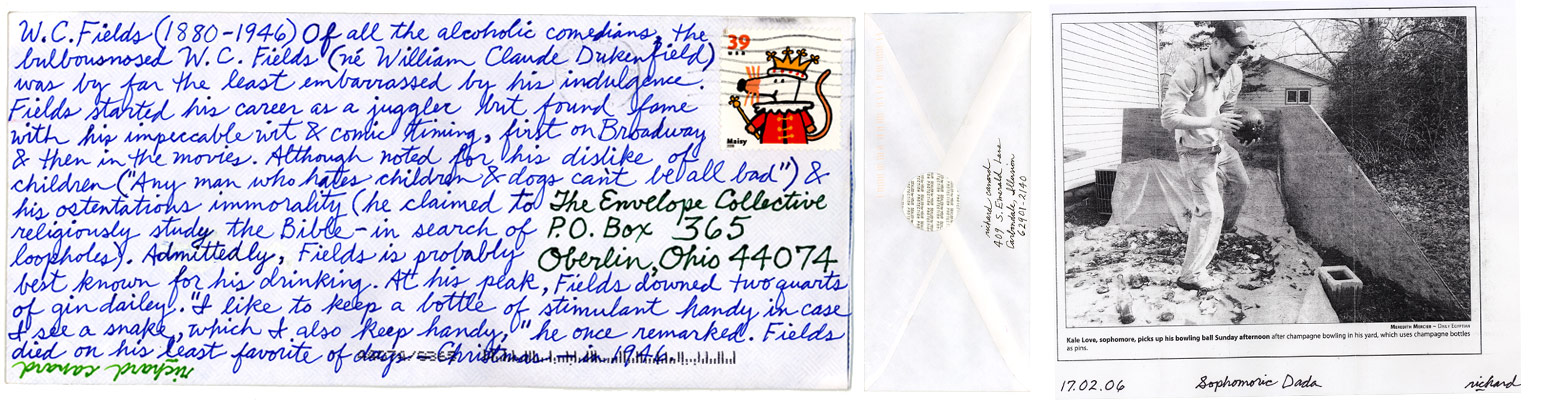 W.C. Fields (1880-1946) Of all the alcoholic comedians, the
bulbousnosed W. C. Fields (né William Claude Dukenfield)
was by far the least embarrassed by his indulgence.
Fields started his career as a juggler but found fame
with his impeccable wit & comic timing, first on Broadway
& then in the movies. Although noted for his dislike of
children ("Any man who hates children & dogs can't be all bad") &
his ostentatious immorality (he claimed to
religiously study the Bible-in search of
loopholes). Admittedly, Fields is probably
best known for his drinking. At his peak, Fields downed two quarts
of gin dailey. "I like to keep a bottle of stimulant handy in case
I see a snake, which I also keep handy," he once remarked. Fields
died on his least favorite of days - Christmas - in 1946.
richard canard
39
USA
Maisy
The Envelope Collective
P.O. Box 365
Oberlin, Ohio 44074
richard canard
409 S. Emerald Lane
Carbondale, Illinois
62901-2140
MEREDITH MERCIER ~ DAILY EGYPTIAN
Kale Love, sophomore, picks up his bowling ball Sunday afternoon after champagne bowling in his yard, which uses champagne bottles
as pins.
17.02.06
Sophomoric Dada
richard